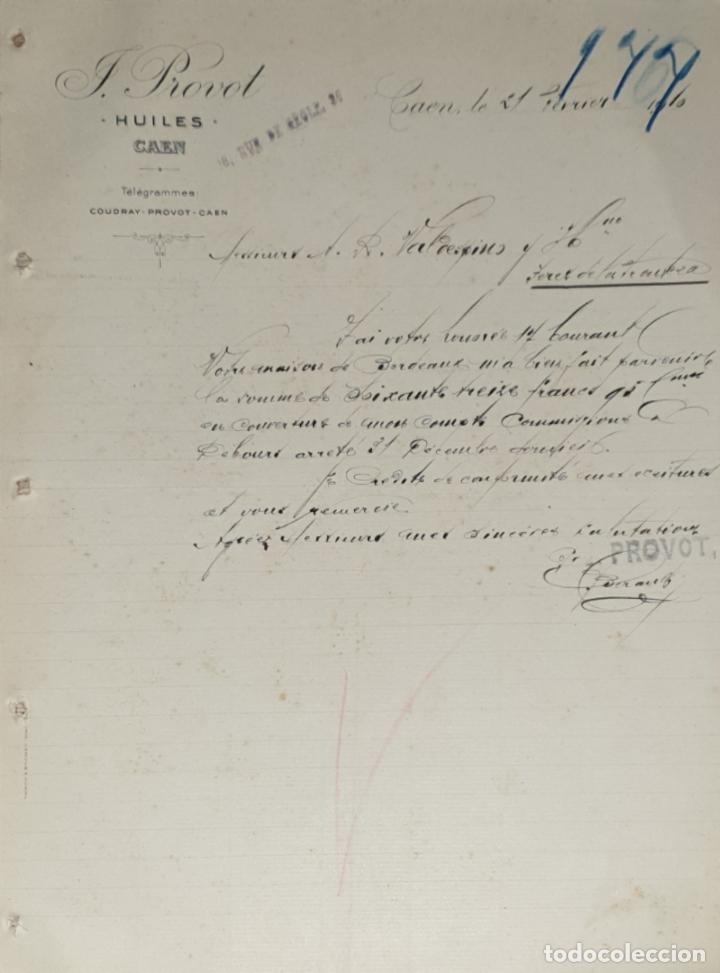 J. Provot
HUILES
CAEN
Télégrammes:
COUDRAY-PROVOT-CAEN
RUE DE
Caen, le 21 Février
Messieurs A. R. Valdespino y Hno
Jerez de la Frontera
J'ai votre honorée 17 Courant
Votre maison de Bordeaux m'a bien fait parvenir
la somme de Soixante treize francs
en couverture de mon compte Commissions &
Débours arrêté 31 Décembre dernier.
Je Crédite de conformité mes écritures
et vous remercie.
Agréez Messieurs mes sincères salutations
PROVOT,
todocoleccion